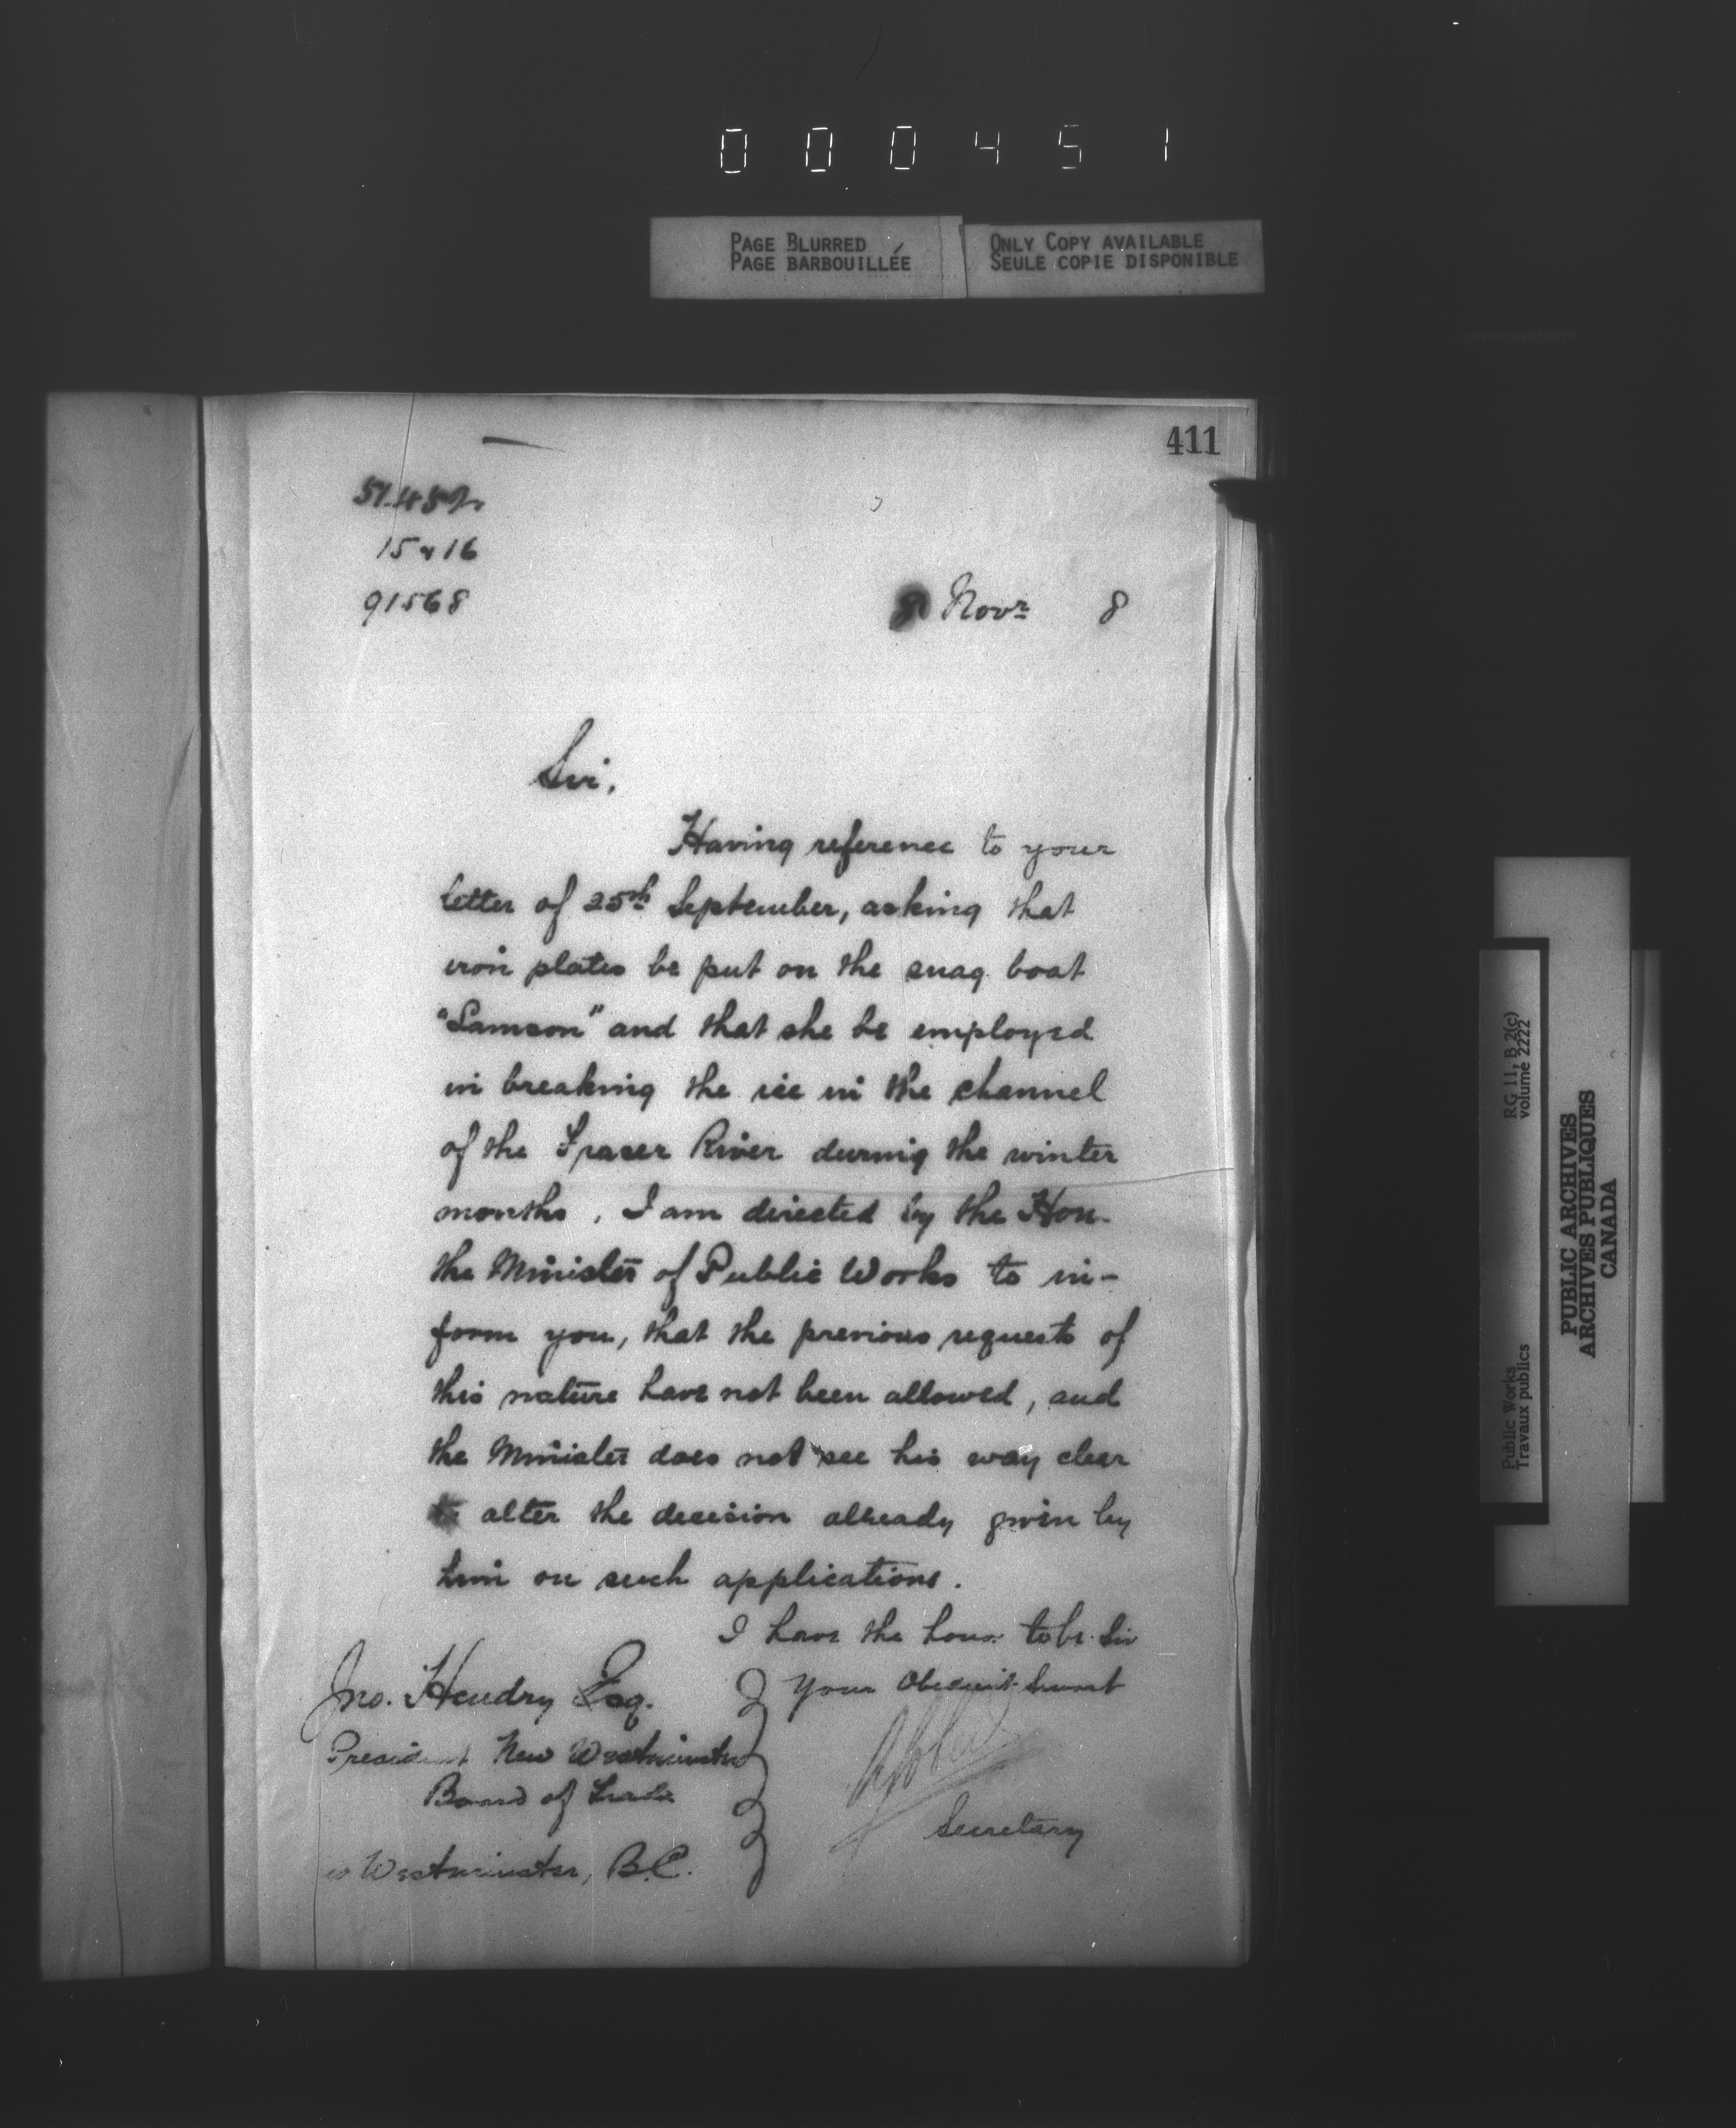 000451
PAGE BLURRED
PAGE BARBOUILLÉE
ONLY COPY AVAILABLE
SEULE COPIE DISPONIBLE
411
15 & 16
91568
8 Novr 8
Sir,
Having reference to your
letter of 25th September, asking that
iron plates be put on the snag boat
"Samson" and that she be employed
in breaking the ice in the channel
of the Fraser River during the winter
months, I am directed by the Hon.
the Minister of Public Works to in-
form you, that the previous requests of
this nature have not been allowed, and
the Minister does not see his way clear
to alter the decision already given by
him on such applications.
I have the honor to be Sir
Your Obedient Servant
Secretary
Jno. Hendry Esq.
President New Westminster
Board of Trade
w Westminster, B.C.
Public Works
Travaux publics
RG 11, B 2(c)
volume 2222
PUBLIC ARCHIVES
ARCHIVES PUBLIQUES
CANADA